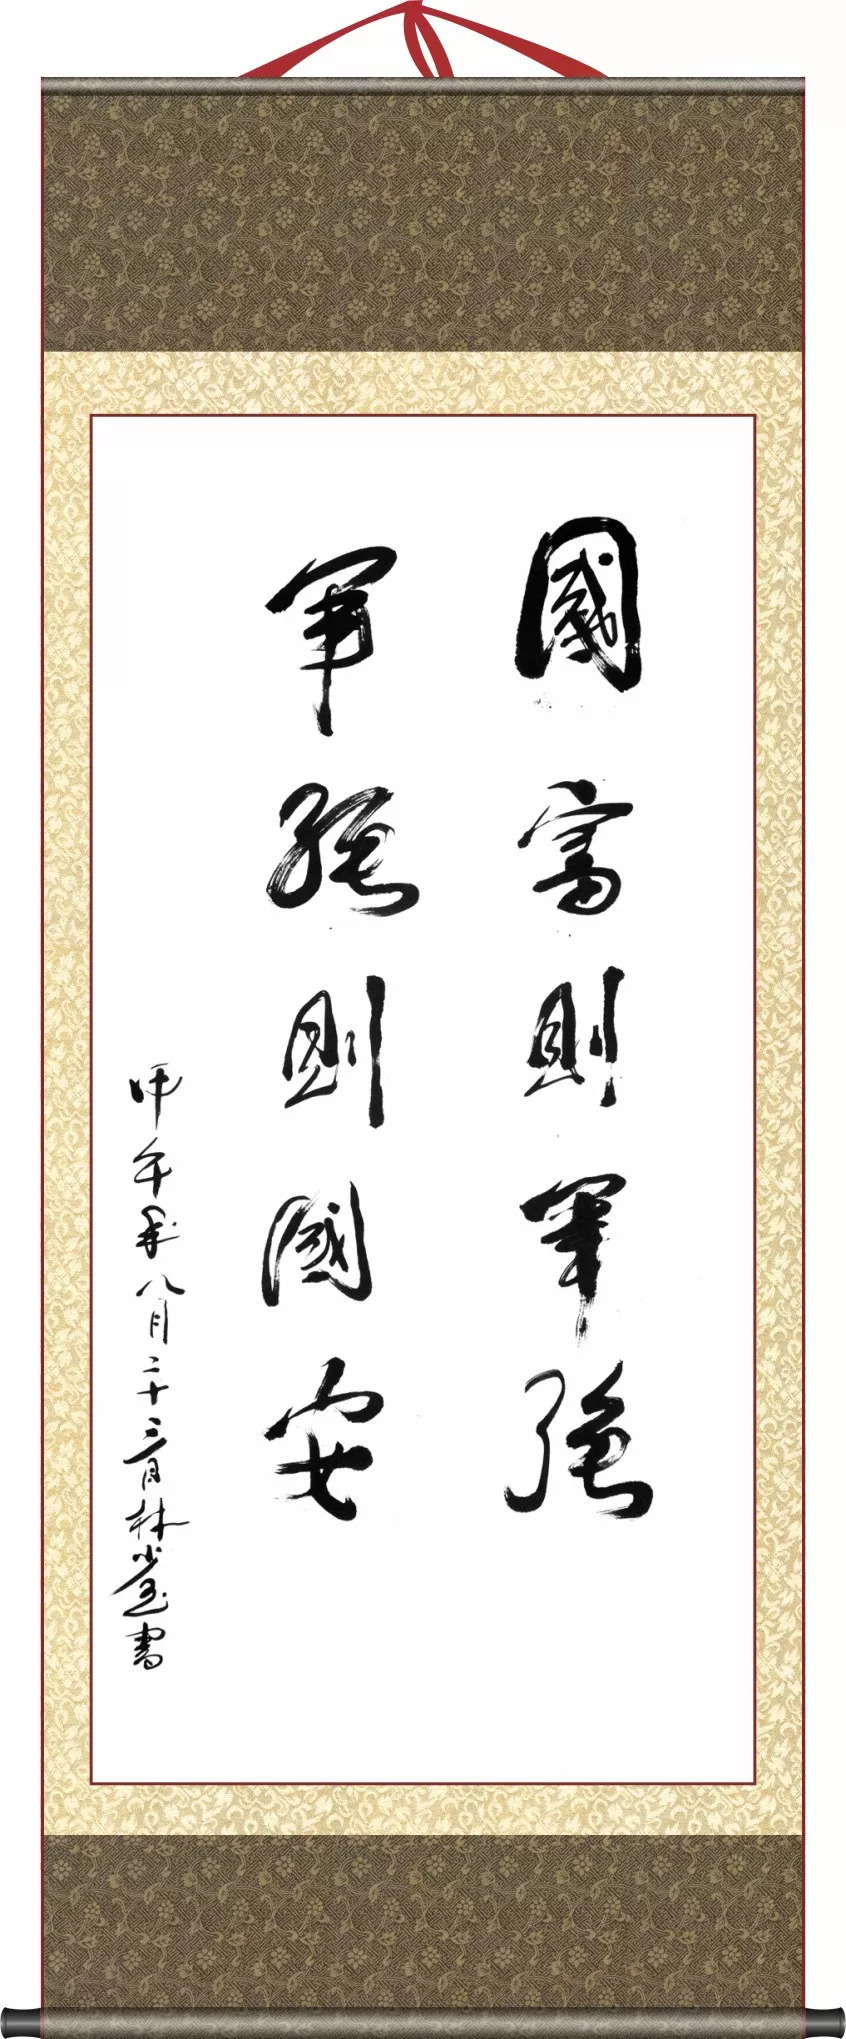 國富則軍強
軍強則國安
甲午年八月二十三日林書